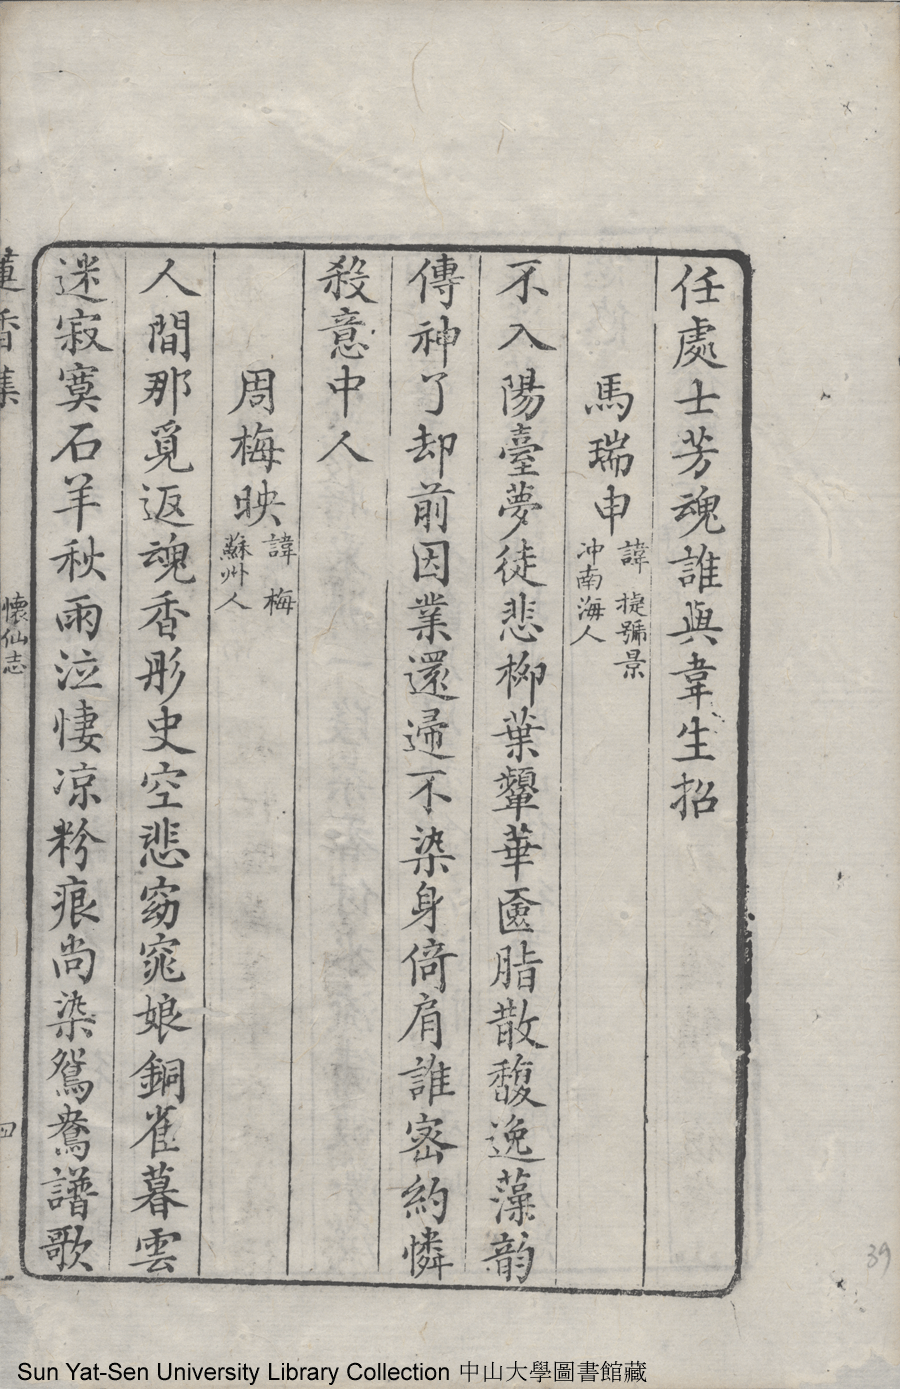 任處士芳魂誰與韋生招
馬瑞申 諱捷號景
冲南海人
不入陽臺夢徒悲柳葉顰華匳脂散馥逸藻韵
傳神了却前因業還歸不染身倚肩誰密約憐
殺意中人
周梅映 諱梅
蘇州人
人間那覓返魂香彤史空悲窈窕娘銅雀暮雲
迷寂寞石羊秋雨泣悽凉粉痕尚染鴛鴦譜歌
蓮香集
懷仙志
四
39
Sun Yat-Sen University Library Collection 中山大學圖書館藏